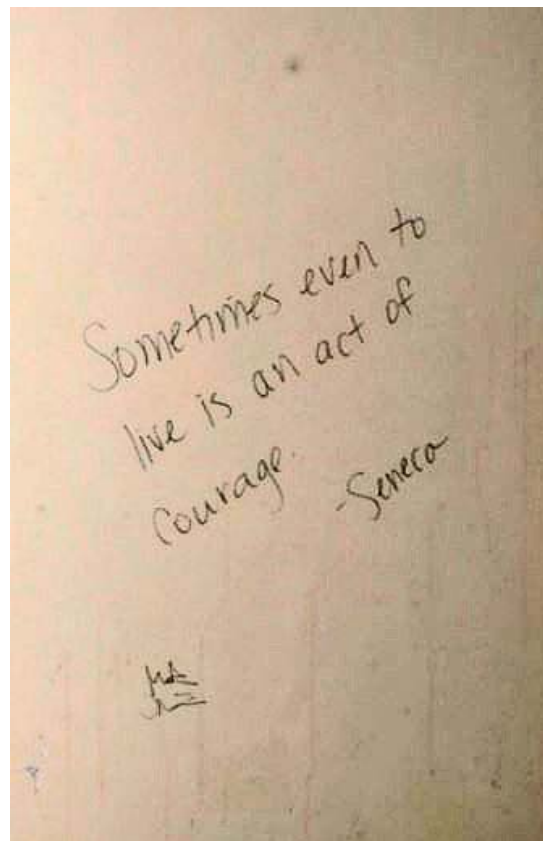 Sometimes even to
live is an act of
courage.
-Seneca